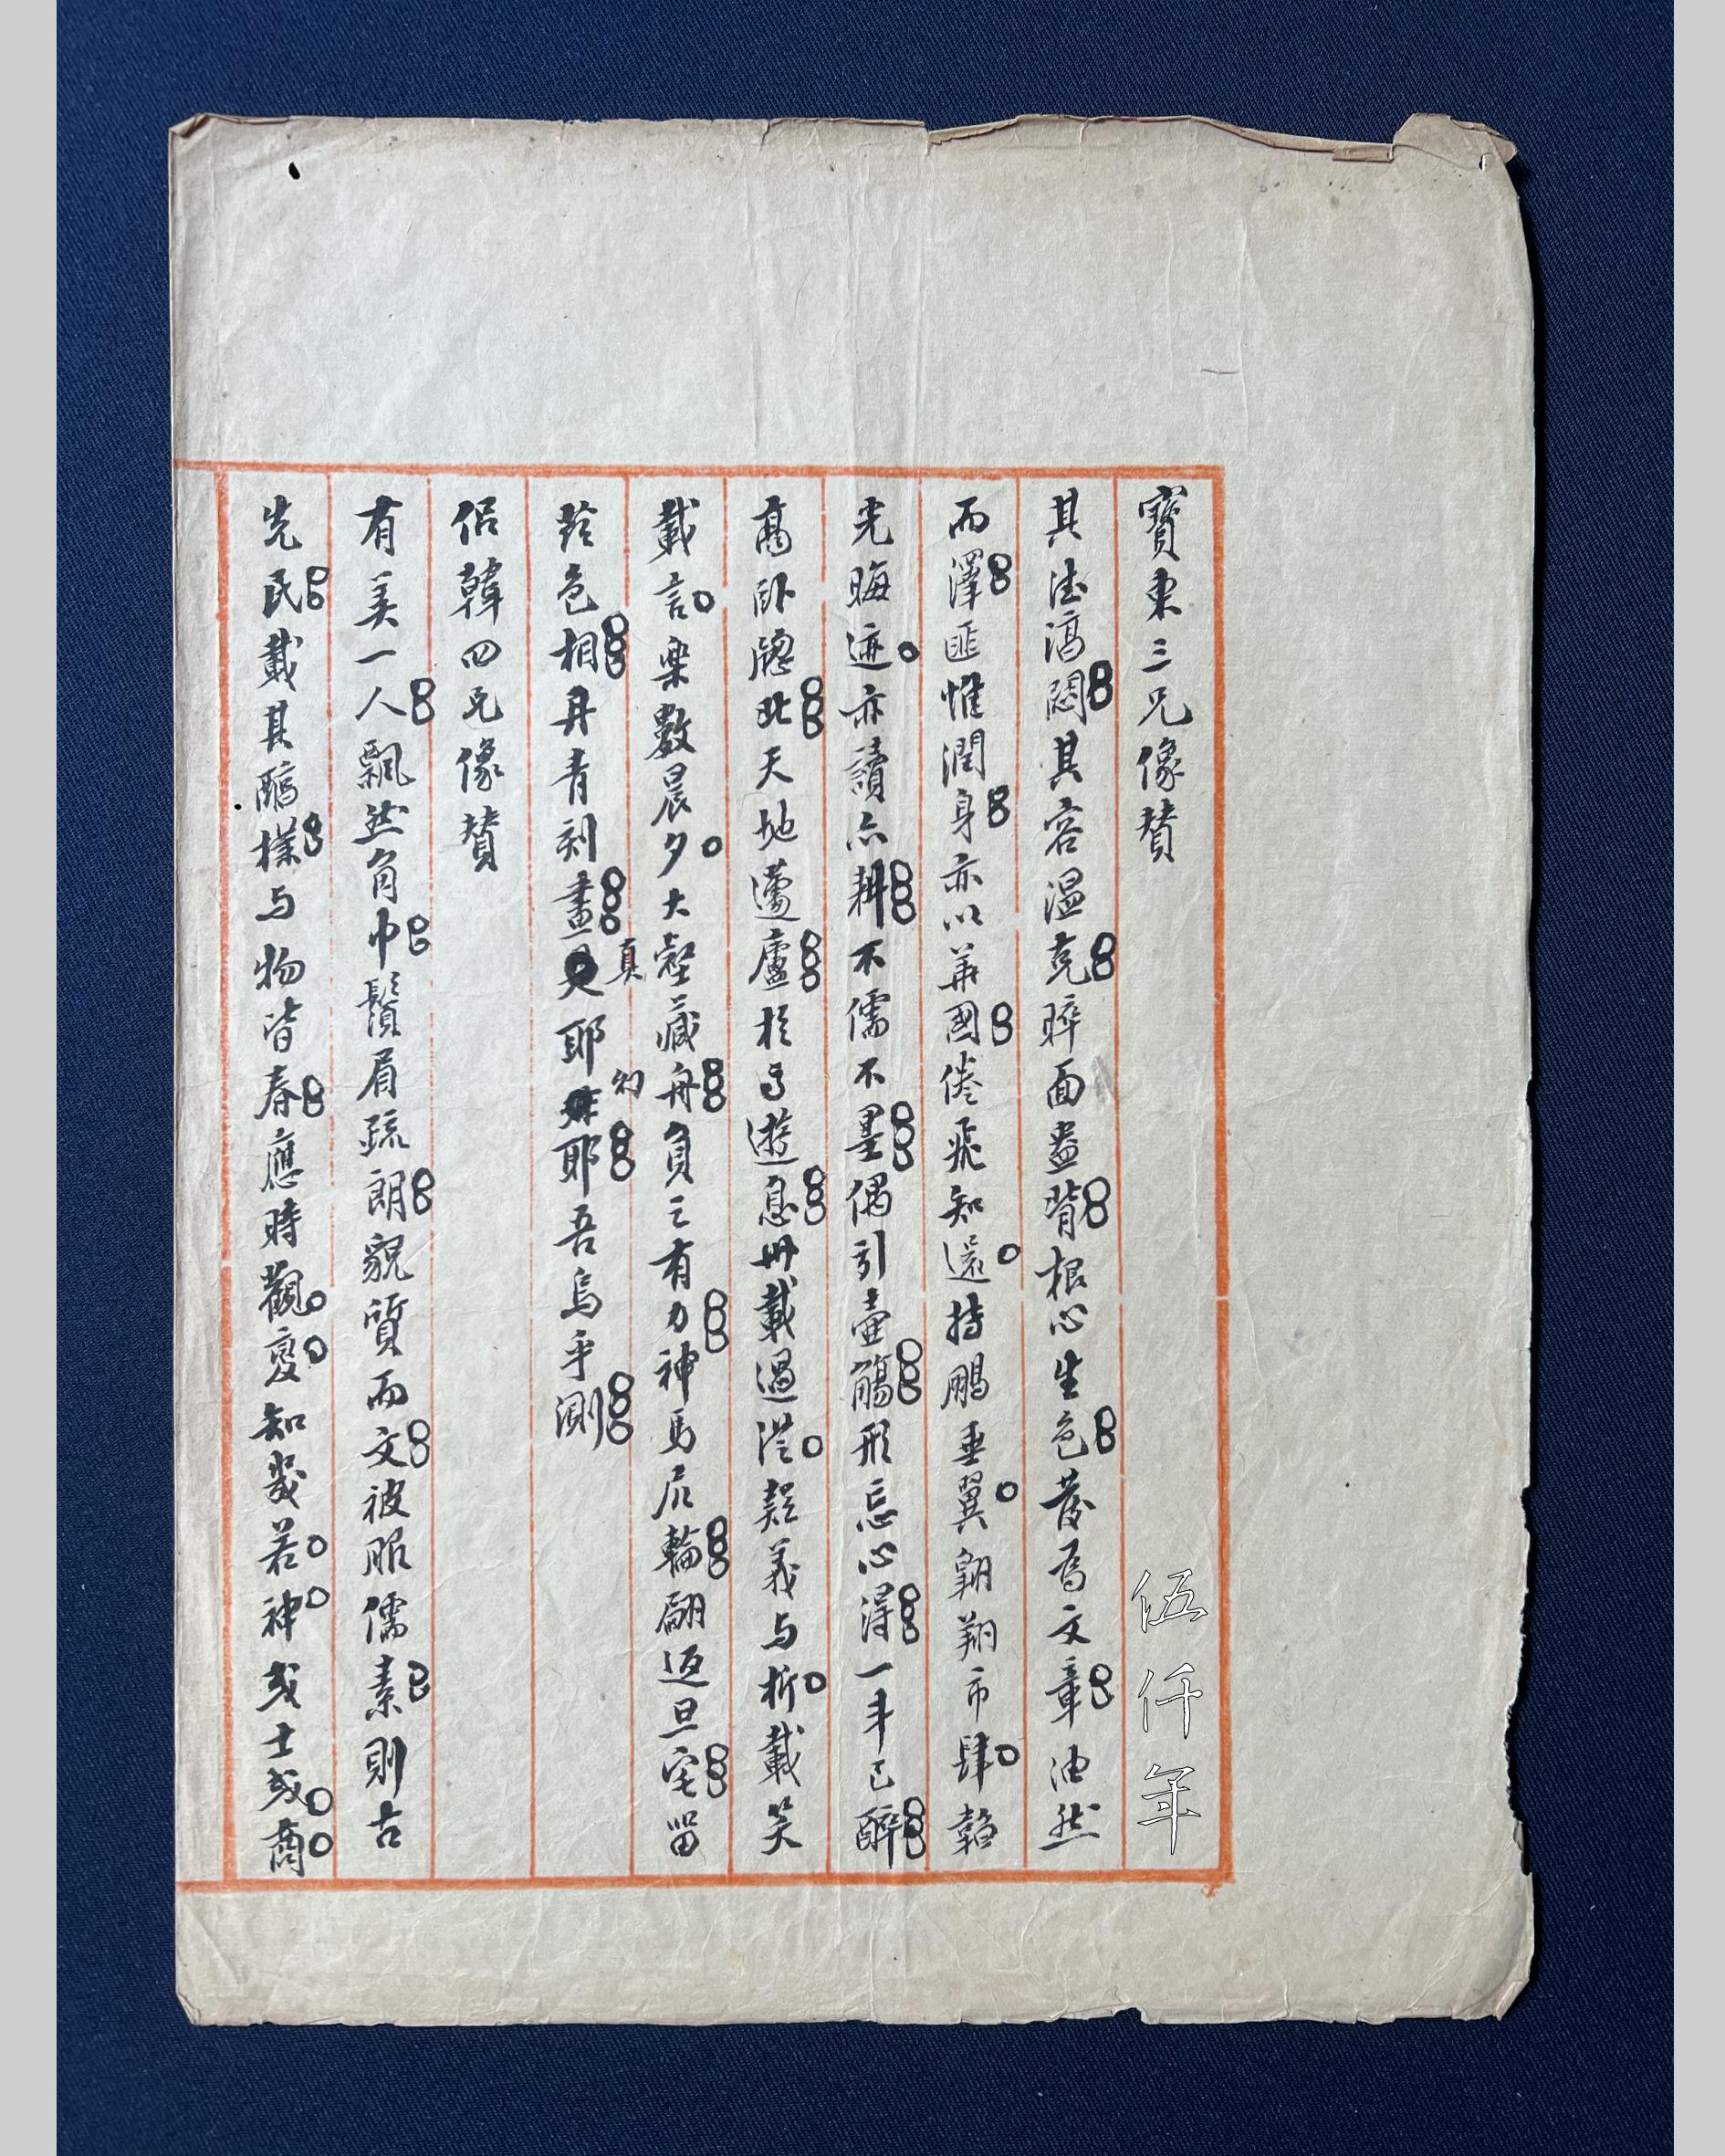 寶東三兄像贊
其德渾悶其容溫克睟面盎背根心生色發為文章油然
而澤匪惟潤身亦以華國倦飛知還持鵬垂翼翱翔市肆韜
光晦迹亦讀亦耕不儒不墨偶引壺觴形忘心得一斗已醉
高臥牕北天地蘧廬於焉遊息卅載過從疑義与析載笑
載言樂數晨夕大壑藏舟負之有力神馬尻輪翩返旦宅留
茲色相丹青刻畫真耶幻耶吾烏乎測
侶韓四兄像贊
有美一人飄然角巾鬚眉疏朗貌質而文被服儒素則古
先民戴其醇樸与物皆春應時觀變知幾若神或士或商
伍仟年